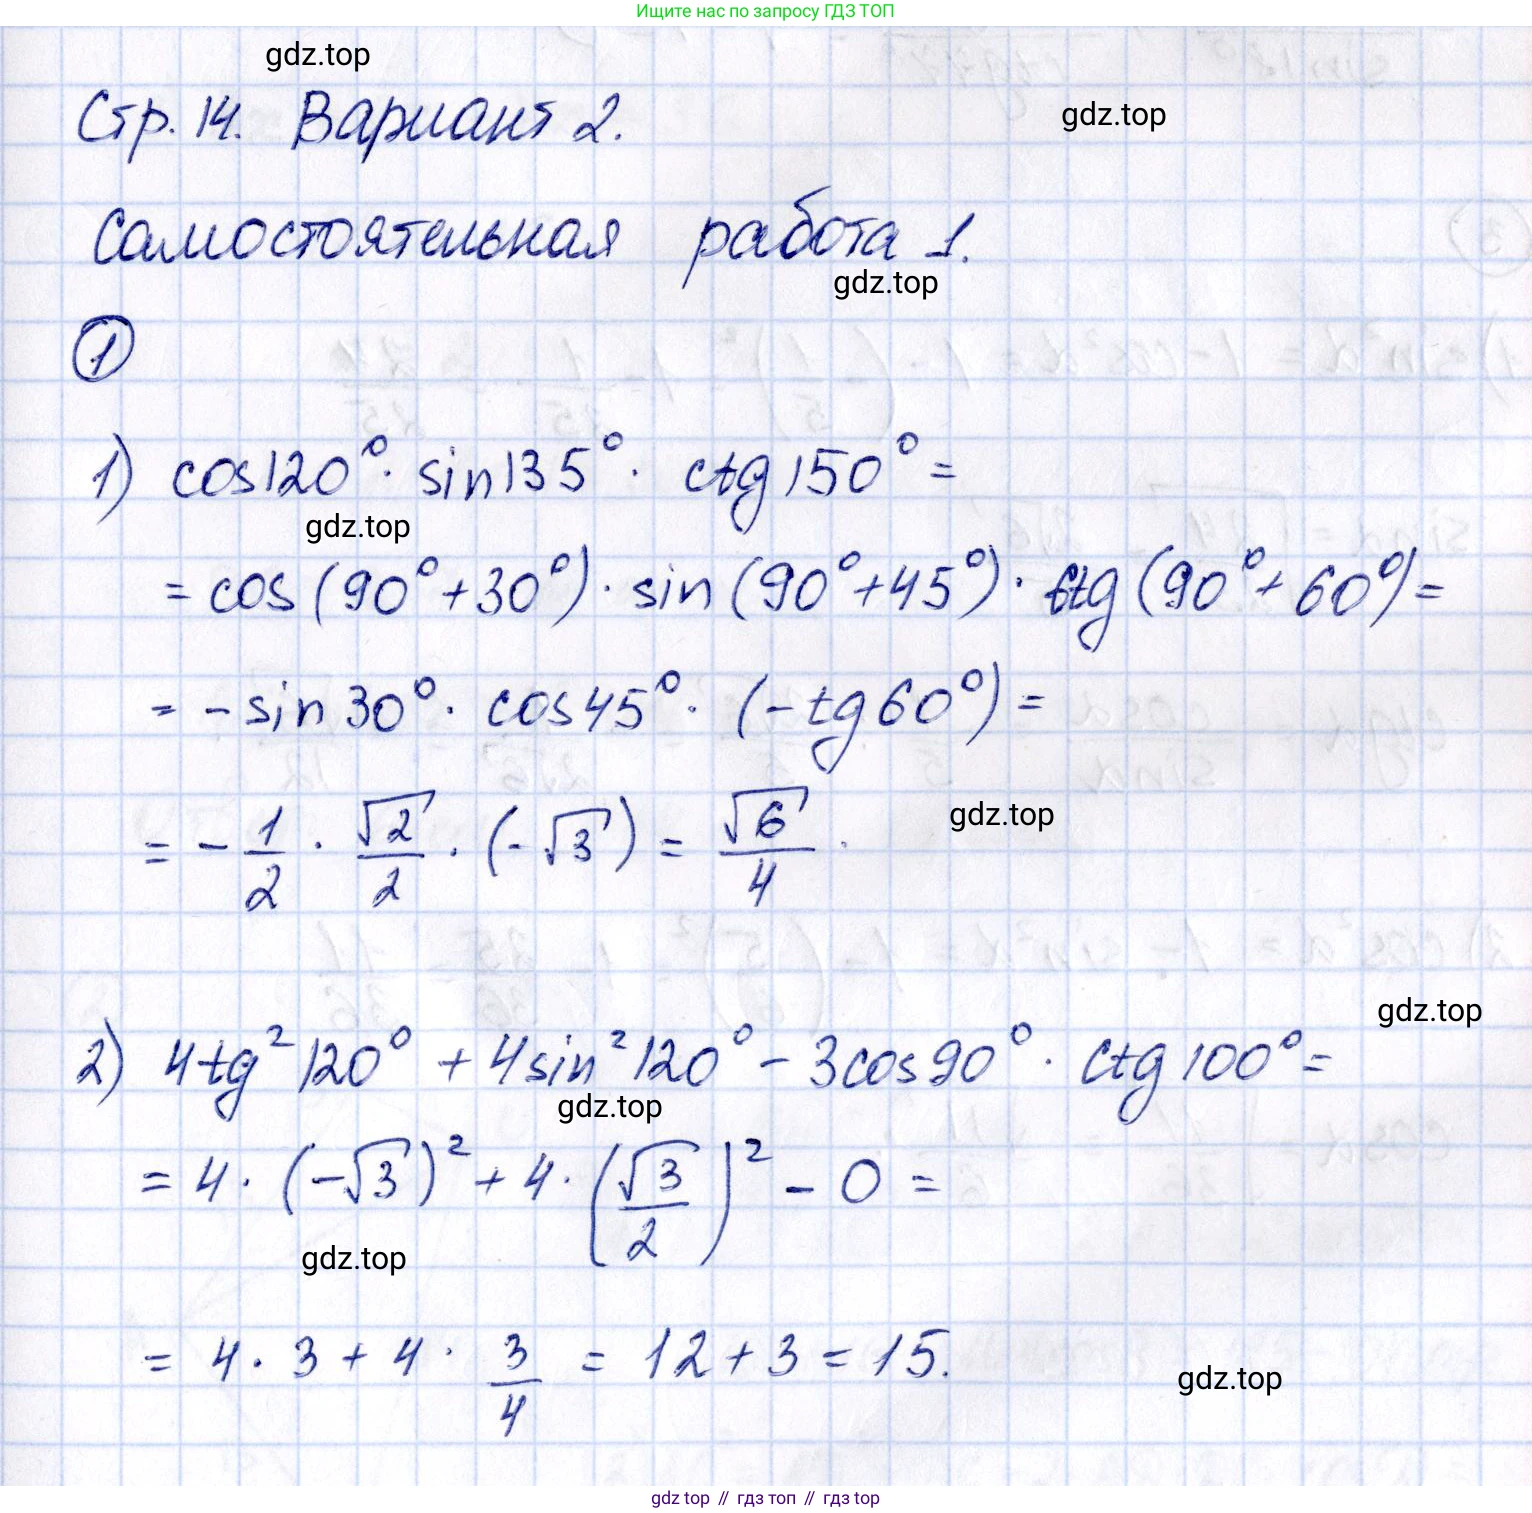 Ищите нас по запросу ГДЗ ТОП
gdz.top
Стр. 14. Вариант 2.
gdz.top
Самостоятельная работа 1.
gdz.top
1
1) cos120° · sin135° · ctg150° =
gdz.top
= cos(90° + 30°) · sin(90° + 45°) · ctg(90° + 60°) =
= -sin30° · cos45° · (-tg60°) =
= -1/2 · √2/2 · (-√3) = √6/4.
gdz.top
gdz.top
2) 4tg²120° + 4sin²120° - 3cos90° · ctg100° =
gdz.top
= 4 · (-√3)² + 4 · (√3/2)² - 0 =
gdz.top
= 4 · 3 + 4 · 3/4 = 12 + 3 = 15.
gdz.top
gdz top // гдз топ // гдз top